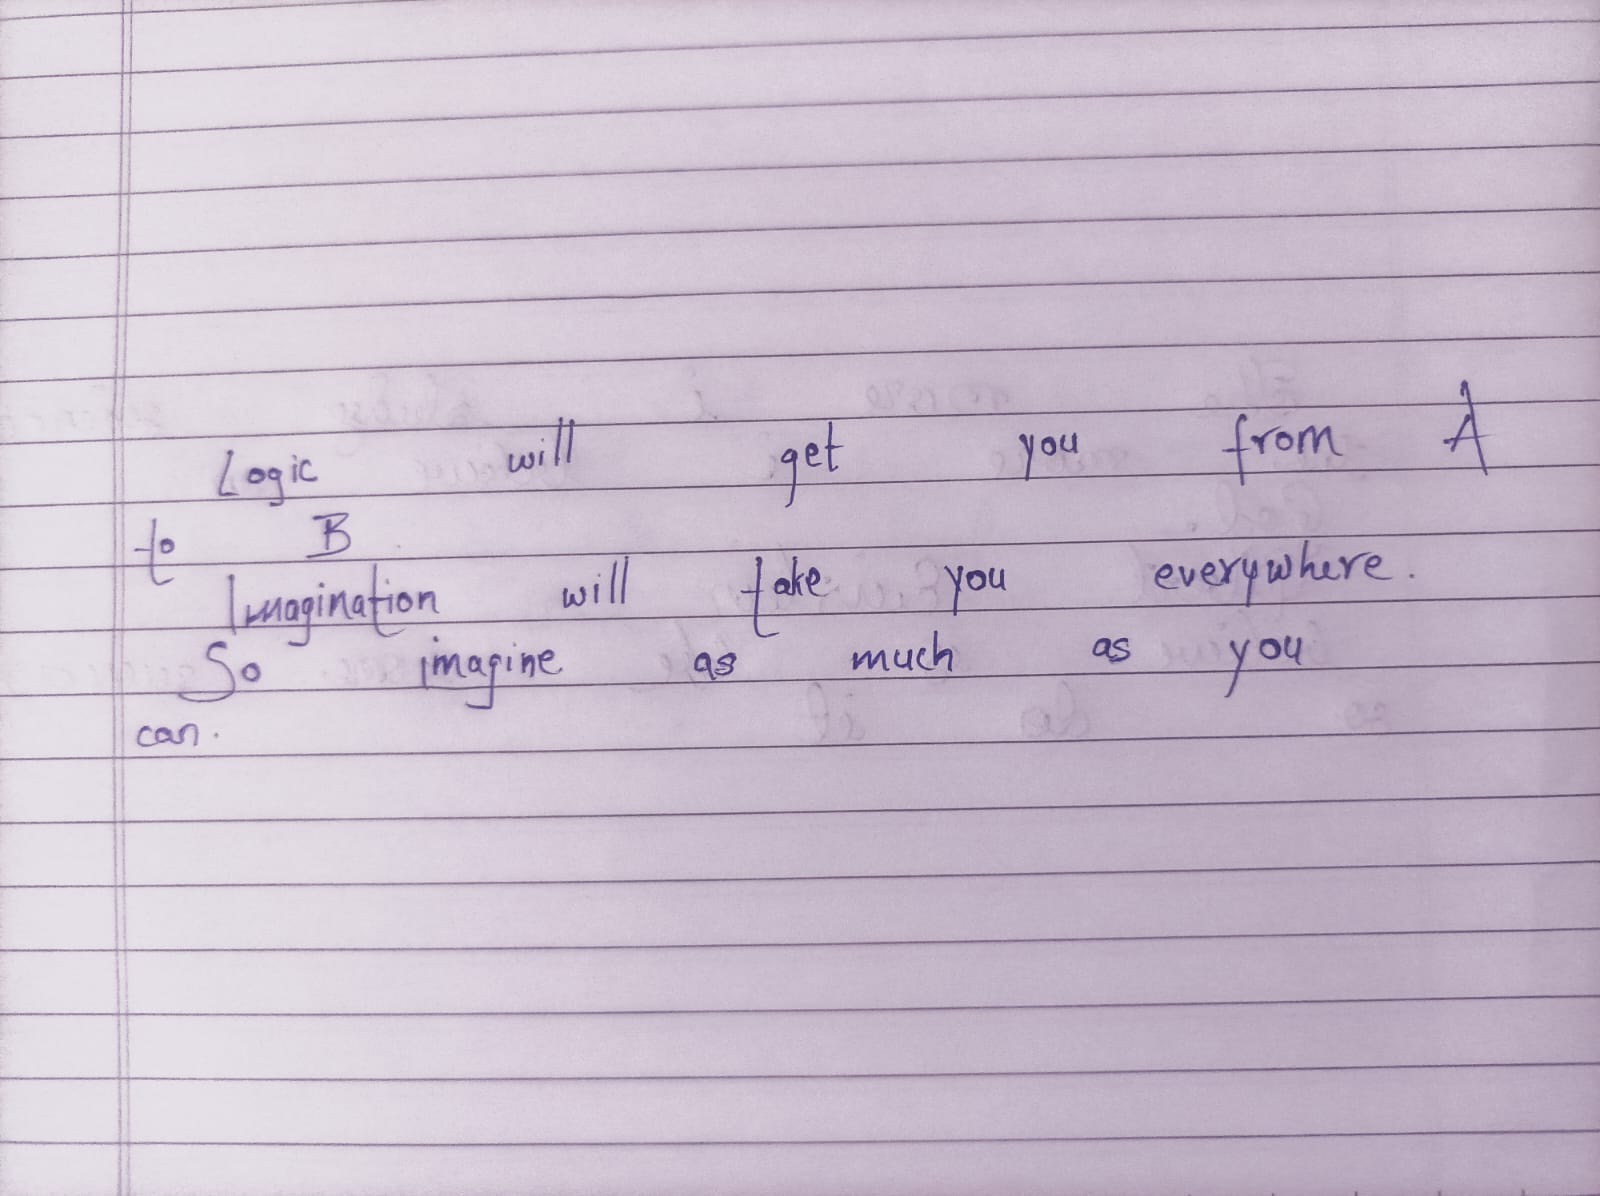 Logic will get you from A
to B
Imagination will take you everywhere.
So imagine as much as you
can.